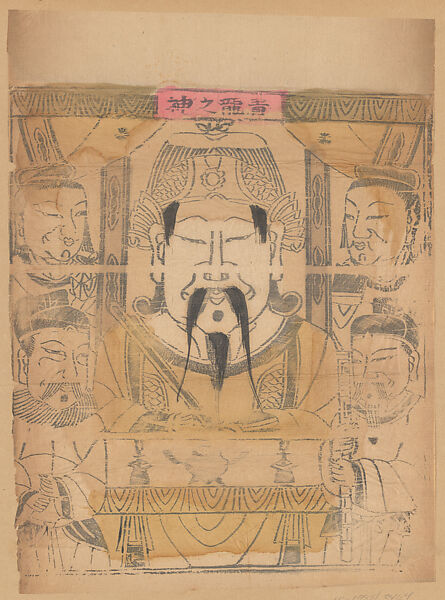 青龍之神